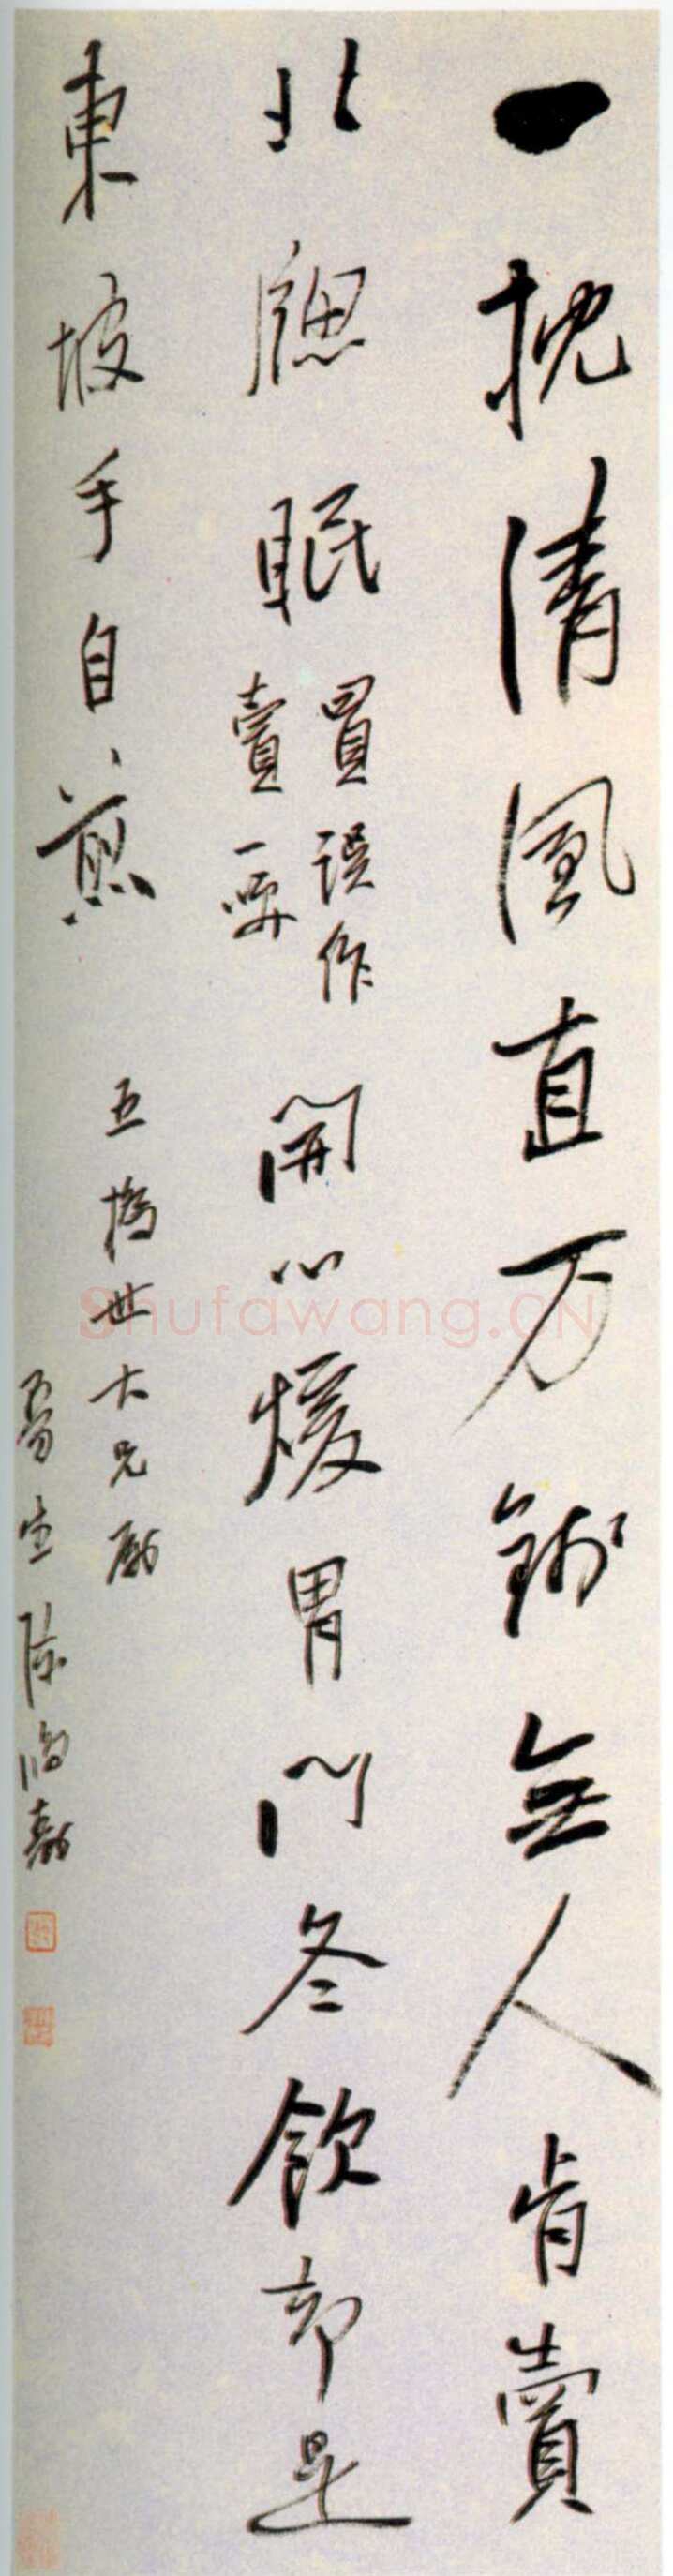 一枕清風直万錢無人肯賣
北牕眠
買誤作
賣一咲
開心煖胃門冬飲却是
東坡手自煎
五橋世大兄属
曼生陳鴻壽
Shufawang.CN